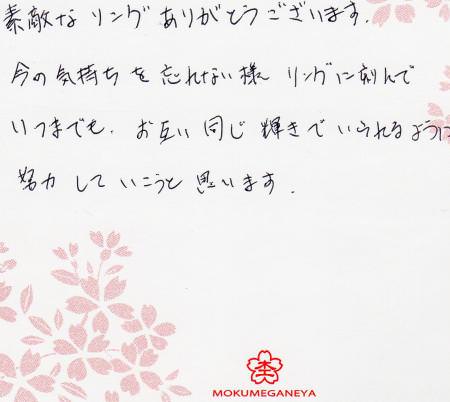 素敵なリングありがとうございます.
今の気持ちを忘れない様 リングに刻んで
いつまでも、お互い同じ輝きでいられるように
努力していこうと思います.
MOKUMEGANEYA